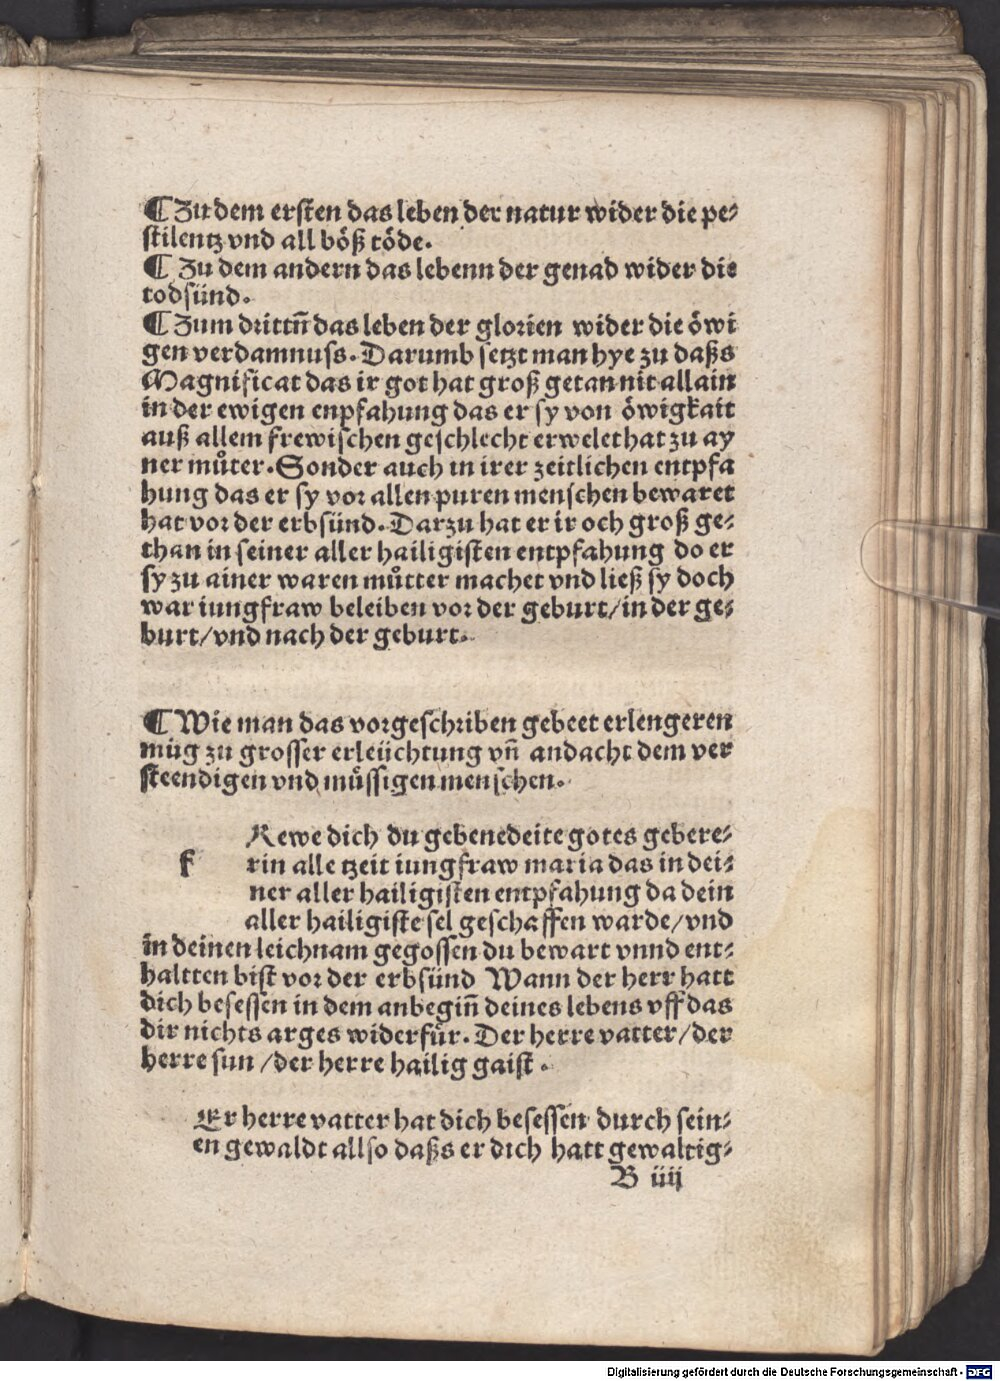 ¶ Zu dem ersten das leben der natur wider die pe⸗
stilentz vnd all böß töde.
¶ Zu dem andern das lebenn der genad wider die
todsünd.
¶ Zum dritñ das leben der glorien wider die öwi
gen verdamnuss. Darumb setzt man hye zu daßs
Magnificat das ir got hat groß getan nit allain
in der ewigen enpfahung das er sy von öwigkait
auß allem frewischen geschlecht erwelet hat zu ay
ner můter. Sonder auch in irer zeitlichen entpfa
hung das er sy vor allen puren menschen bewaret
hat vor der erbsünd. Darzu hat er ir och groß ge⸗
than in seiner aller hailigisten entpfahung do er
sy zu ainer waren můtter machet vnd ließ sy doch
war iungfraw beleiben vor der geburt/in der ge⸗
burt/vnd nach der geburt.
¶ Wie man das vorgeschriben gebeet erlengeren
müg zu grosser erleüchtung vñ andacht dem ver
steendigen vnd müssigen menschen.
f Rewe dich du gebenedeite gotes gebere⸗
rin alle tzeit iungfraw maria das in dei⸗
ner aller hailigisten entpfahung da dein
aller hailigiste sel geschaffen warde/vnd
in deinen leichnam gegossen du bewart vnnd ent⸗
haltten bist vor der erbsünd Wann der herr hatt
dich besessen in dem anbegiñ deines lebens vff das
dir nichts arges widerfür. Der herre vatter/der
herre sun /der herre hailig gaist.
Er herre vatter hat dich besessen durch sein⸗
en gewaldt allso daßs er dich hatt gewaltig⸗
B iiij
Digitalisierung gefördert durch die Deutsche Forschungsgemeinschaft - DFG